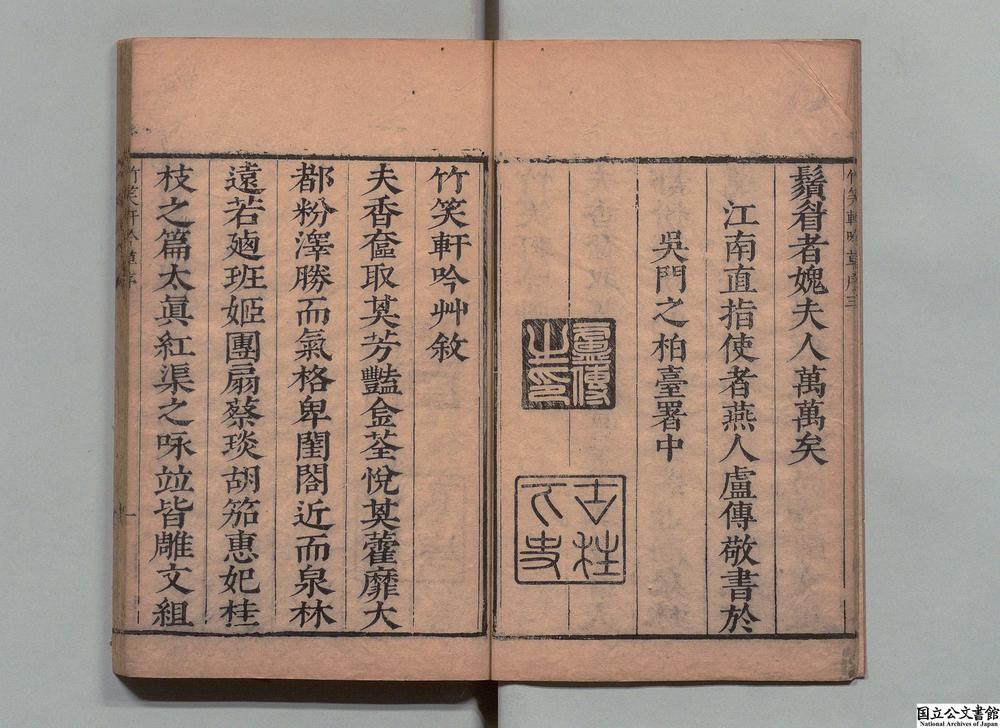 竹笑軒吟草序三
鬚眉者媿夫人萬萬矣
江南直指使者燕人盧傳敬書於
吳門之柏臺署中
盧傳
之印
柱
史
竹笑軒吟艸敘
夫香奩取其芳豔金荃悅其藿靡大
都粉澤勝而氣格卑閨閤近而泉林
遠若廼班姬團扇蔡琰胡笳惠妃桂
枝之篇太眞紅渠之咏竝皆雕文組
竹笑軒吟草序
一
国立公文書館
National Archives of Japan